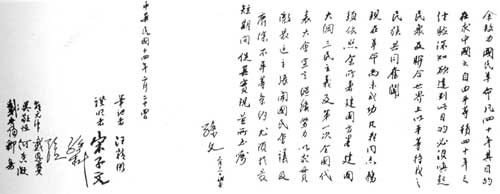 余致力國民革命凡四十年其目的
在求中國之自由平等積四十年之
經驗深知欲達到此目的必須喚起
民衆及聯合世界上以平等待我之
民族共同奮鬥
現在革命尚未成功凡我同志務
須依照余所著建國方略建國
大綱三民主義及第一次全國代
表大會宣言繼續努力以求貫
徹最近主張開國民會議及
廢除不平等條約尤須於最
短期間促其實現是所至囑
孫文
中華民國十四年二月二十四日
筆記者 汪精衛
證明者 宋子文
孫科
邵元沖 戴恩賽
吳敬恆 何香凝
戴季陶 鄒魯